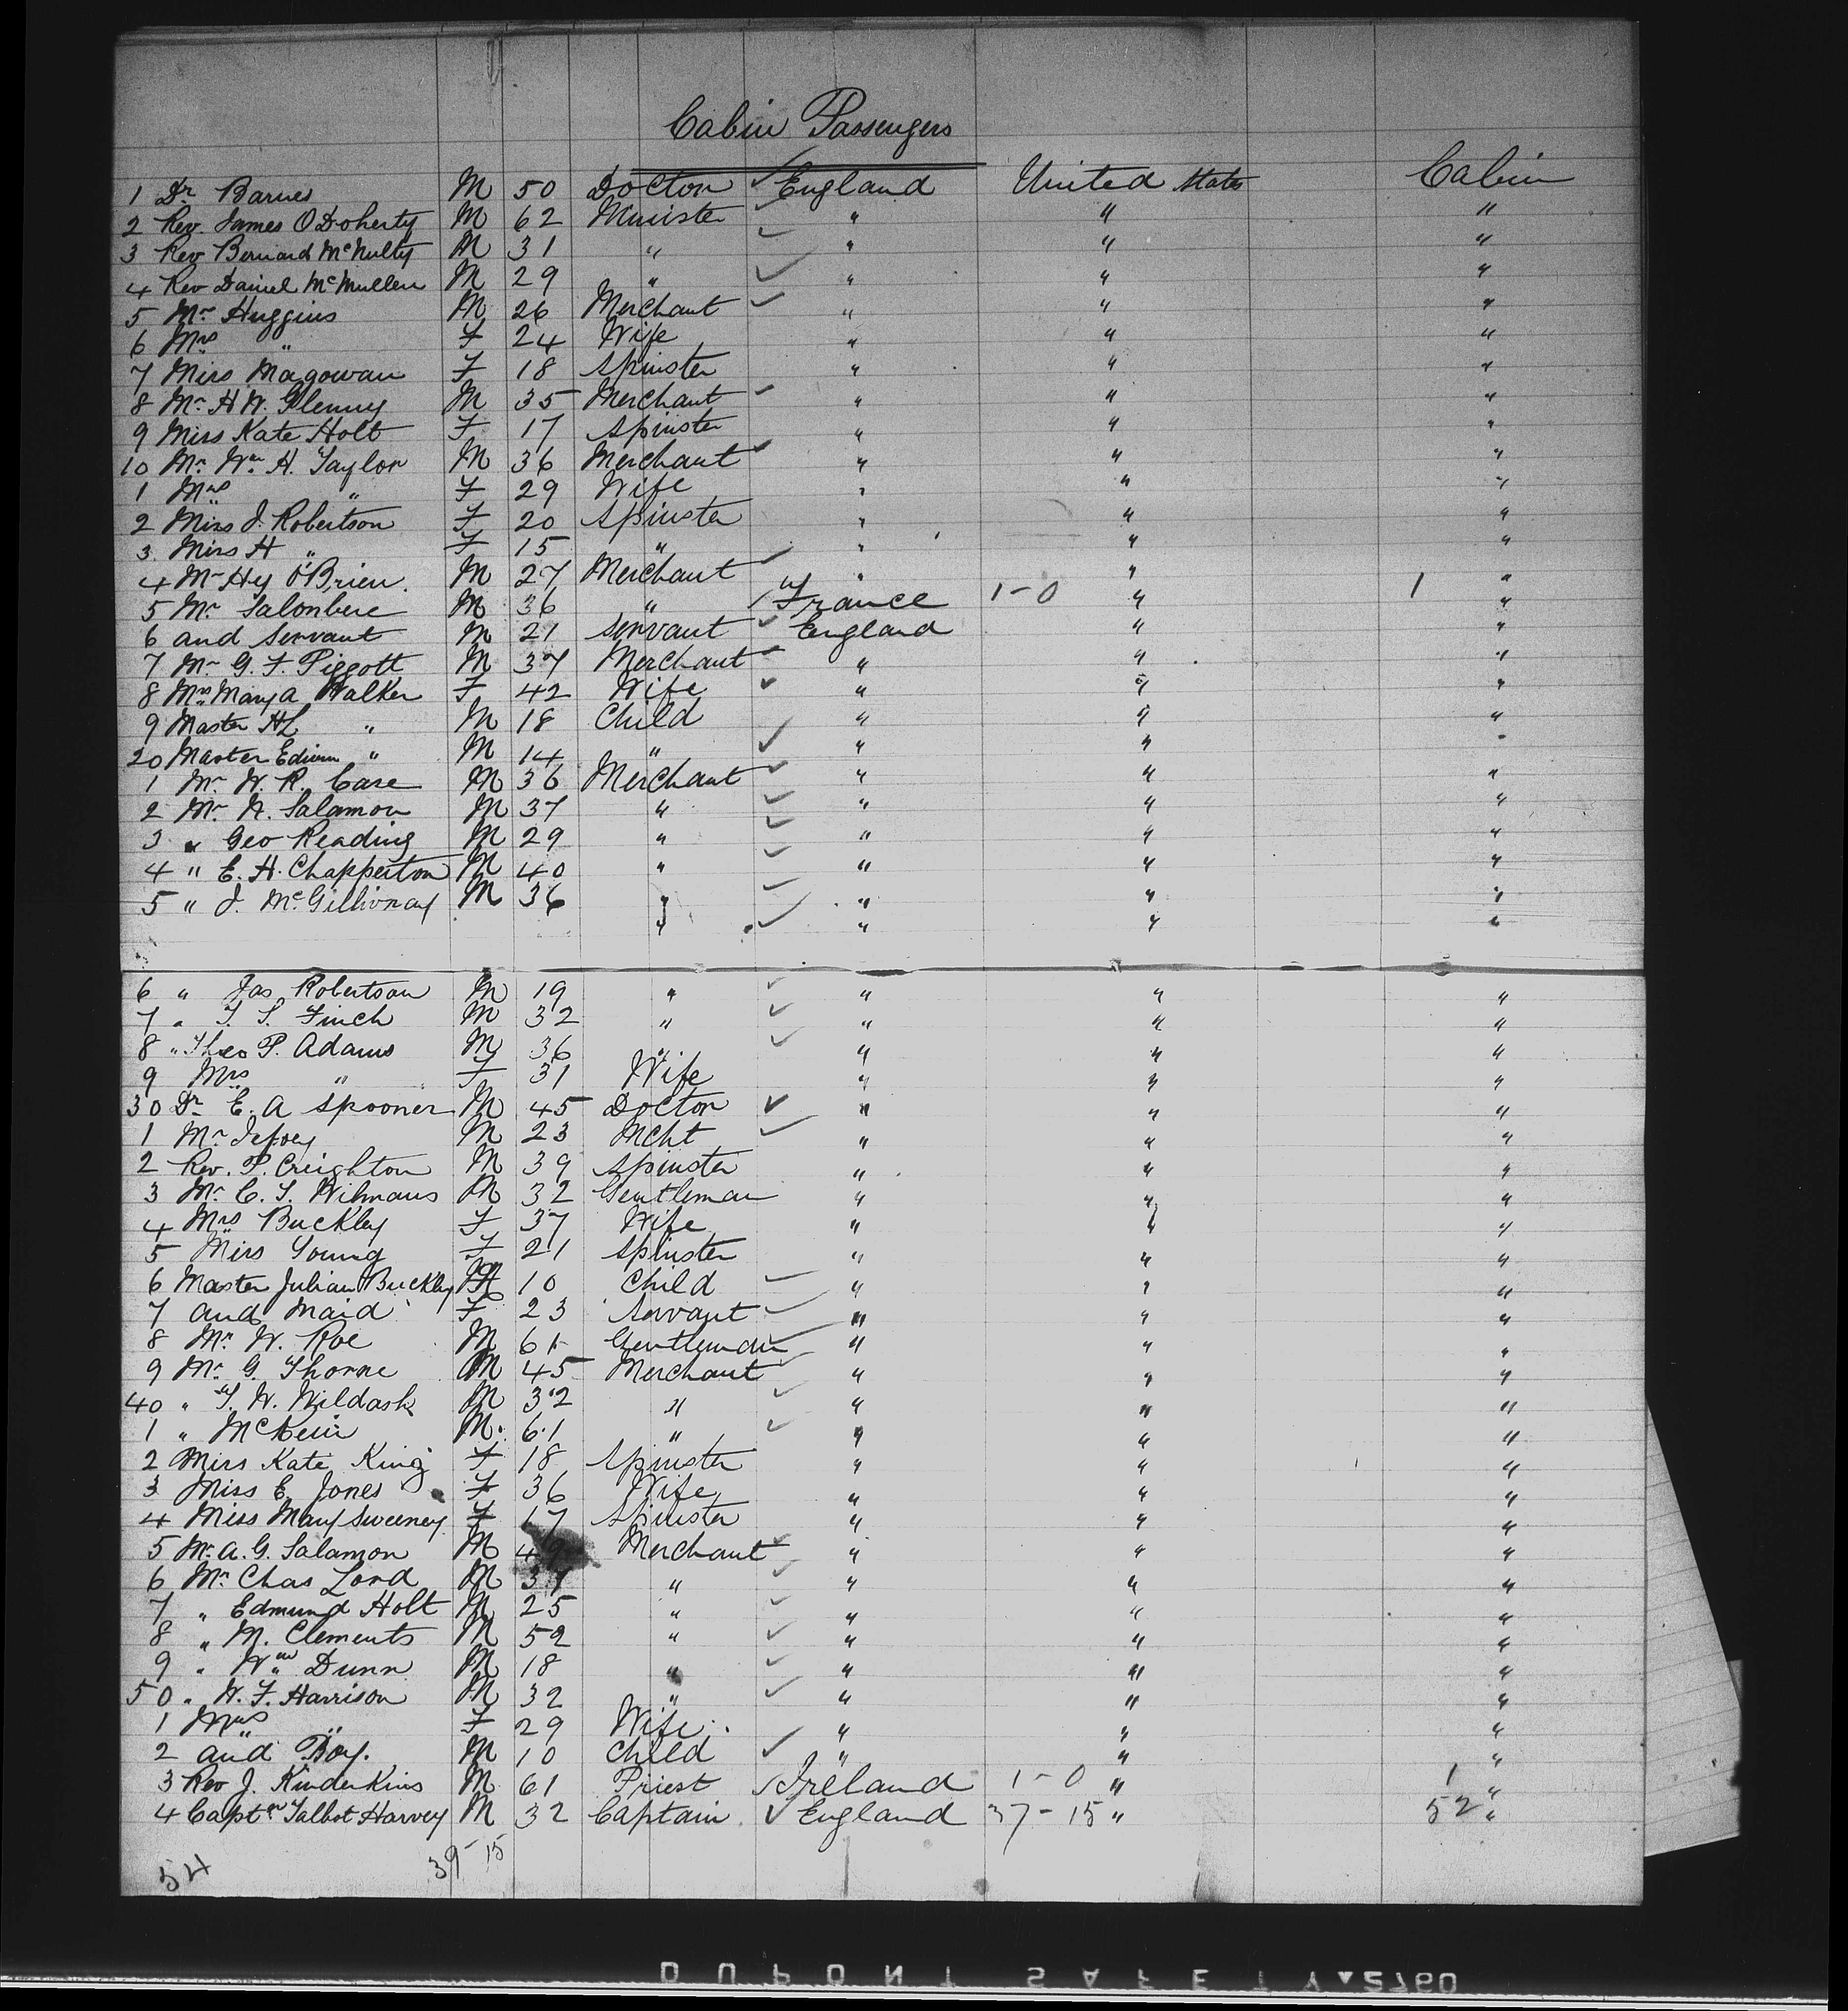 Cabin Passengers
1 Dr Barnes M 50 Doctor England United States Cabin
2 Rev. James O'Doherty M 62 Minister " " "
3 Rev Bernard McNulty M 31 " " " "
4 Rev Daniel McMullen M 29 " " " "
5 Mr Huggins M 26 Merchant " " "
6 Mrs " F 24 Wife " " "
7 Miss Magowan F 18 Spinster " " "
8 Mr H W. Glenny M 35 Merchant " " "
9 Miss Kate Holt F 17 Spinster " " "
10 Mr Wm H. Taylor M 36 Merchant " " "
1 Mrs " F 29 Wife " " "
2 Miss J. Robertson F 20 Spinster " " "
3 Miss H " F 15 " " " "
4 Mr Hy O'Brien. M 27 Merchant " " "
5 Mr M 36 " France 1-0 " 1 "
6 and Servant M 21 Servant England " "
7 Mr G. F. Piggott M 37 Merchant " " "
8 Mrs Mary A Walker F 42 Wife " " "
9 Master HL " M 18 Child " " "
20 Master Edwin " M 14 " " " "
1 Mr W. R. Case M 36 Merchant " " "
2 Mr N. Salamon M 37 " " " "
3 " Geo Reading M 29 " " " "
4 " E. H. Chapperton M 40 " " " "
5 " J. McGillivray M 36 " " " "
" " " "
6 " Jas Robertson M 19 " " " "
7 " T. S. Finch M 32 " " " "
8 " Theo P. Adams M 36 " " " "
9 Mrs " F 31 Wife " " "
30 Dr E. A Spooner M 45 Doctor " " "
1 Mr M 23 Mcht " " "
2 Rev. P. Creighton M 39 Spinster " " "
3 Mr C. S. Wilmans M 32 Gentleman " " "
4 Mrs Buckley F 37 Wife " " "
5 Miss Young F 21 Spinster " " "
6 Master Julian Buckley M 10 Child " " "
7 and Maid F 23 Servant " " "
8 Mr W. Roe M 61 Gentleman " " "
9 Mr G. Thorne M 45 Merchant " " "
40 " T. W. Wildask M 32 " " " "
1 " McKein M. 61 " " " "
2 Miss Kate King F 18 Spinster " " "
3 Miss E. Jones F 36 Wife " " "
4 Miss Mary Sweeney F 17 Spinster " " "
5 Mr. A. G. Salamon M Merchant " " "
6 Mr Chas Lord M 37 " " " "
7 " Edmund Holt M 25 " " " "
8 " M. Clements M 52 " " " "
9 " Wm Dunn M 18 " " " "
50 " W. F. Harrison M 32 " " " "
1 Mrs " F 29 Wife " " "
2 and Boy. M 10 Child " " "
3 Rev J. Kinderkins M 61 Priest Ireland 1-0 " 1 "
4 Captn Talbot Harvey M 32 Captain England 37-15 " 52 "
54 39-15
DUPONT SAFETY 2760